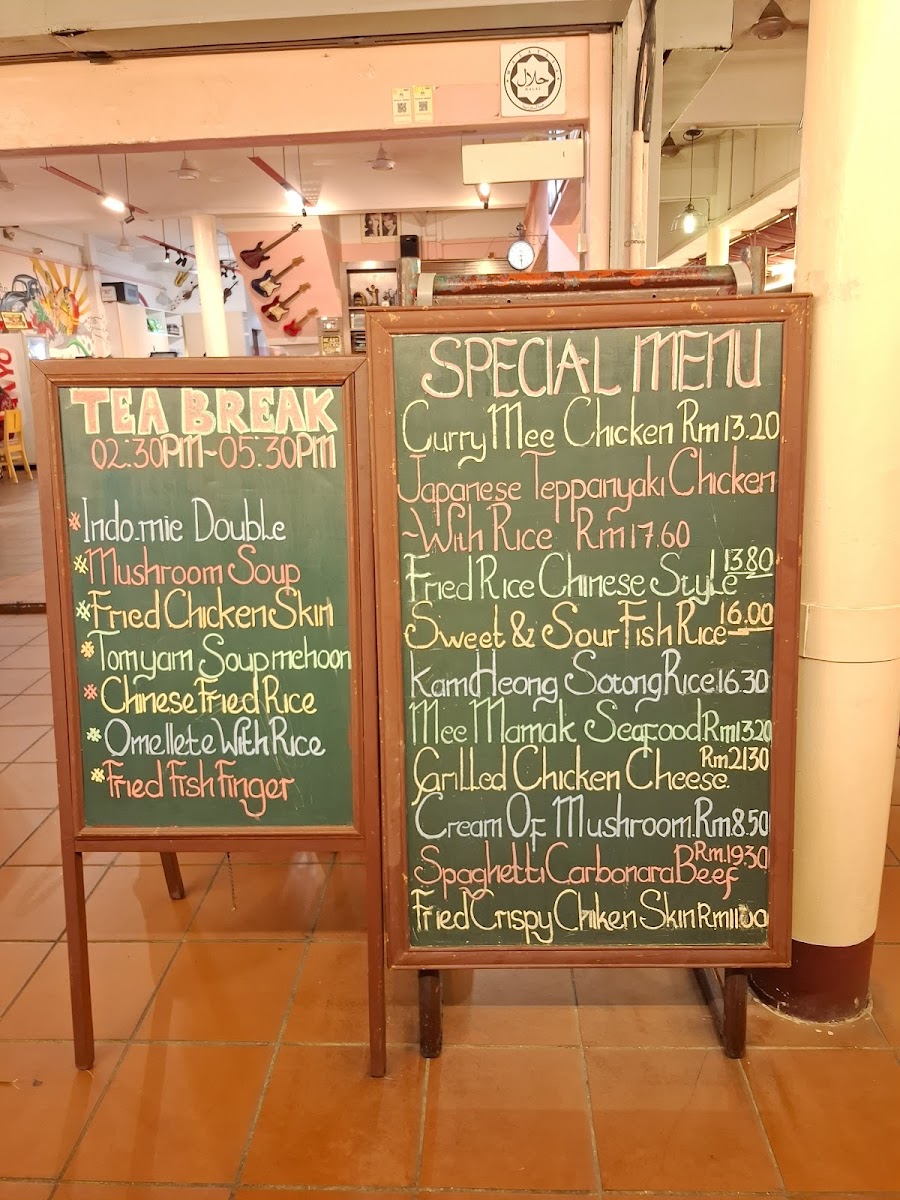 حلال
HALAL
TEA BREAK
02:30PM-05:30PM
*Indo.mie Double
*Mushroom Soup
*Fried Chicken Skin
*Tomyam Soup mehoon
*Chinese Fried Rice
*Omellete With Rice
*Fried Fish Finger
SPECIAL MENU
Curry Mee Chicken Rm 13.20
Japanese Teppanyaki Chicken
-With Rice Rm 17.60
Fried Rice Chinese Style 13.80
Sweet & Sour Fish Rice 16.00
Kam Heong Sotong Rice 16.30
Mee Mamak Seafood Rm 13.20
Grilled Chicken Cheese. Rm 21.30
Cream Of Mushroom. Rm 8.50
Spaghetti Carbonara Beef Rm. 19.30
Fried Crispy Chiken Skin Rm 11.00